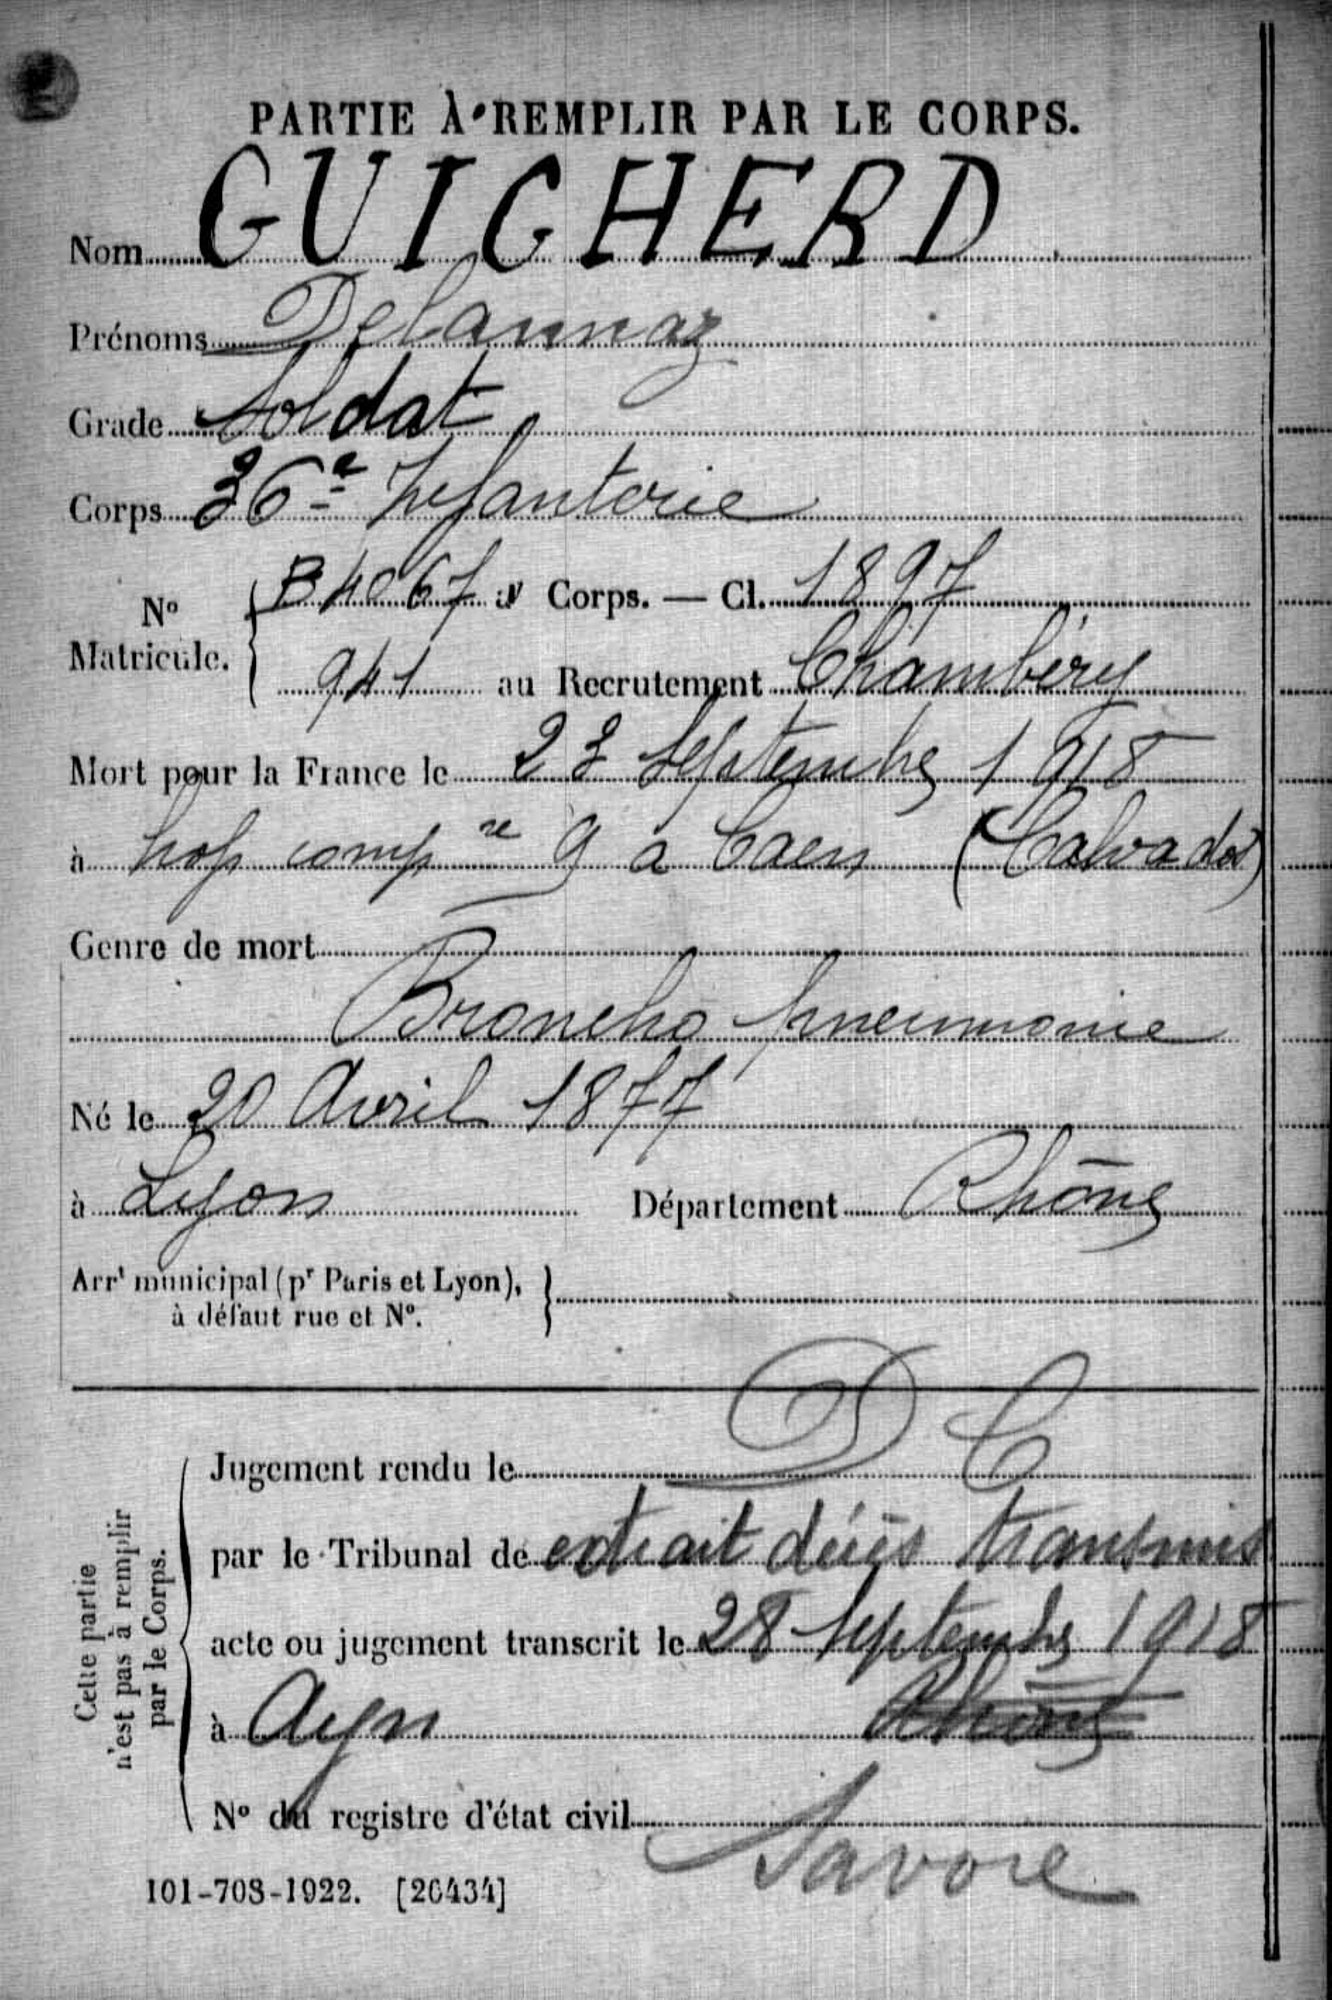 PARTIE À REMPLIR PAR LE CORPS.
Nom GUIGHERD
Prénoms Delannaz
Grade Soldat
Corps 36e Infanterie
No Matricule. B 4067 au Corps. — Cl. 1897
941 au Recrutement Chambéry
Mort pour la France le 23 Septembre 1918
à hop compre 9 a Caen (Calvados)
Genre de mort
Broncho pneumonie
Né le 20 Avril 1877
à Lyon Département Rhône
Arrt municipal (pr Paris et Lyon),
à défaut rue et No.
D C
Cette partie
n'est pas à remplir
par le Corps.
Jugement rendu le
par le Tribunal de extrait décès transmis
acte ou jugement transcrit le 28 Septembre 1918
à Ayn Rhône
No du registre d'état civil
Savoie
101-708-1922. [26434]